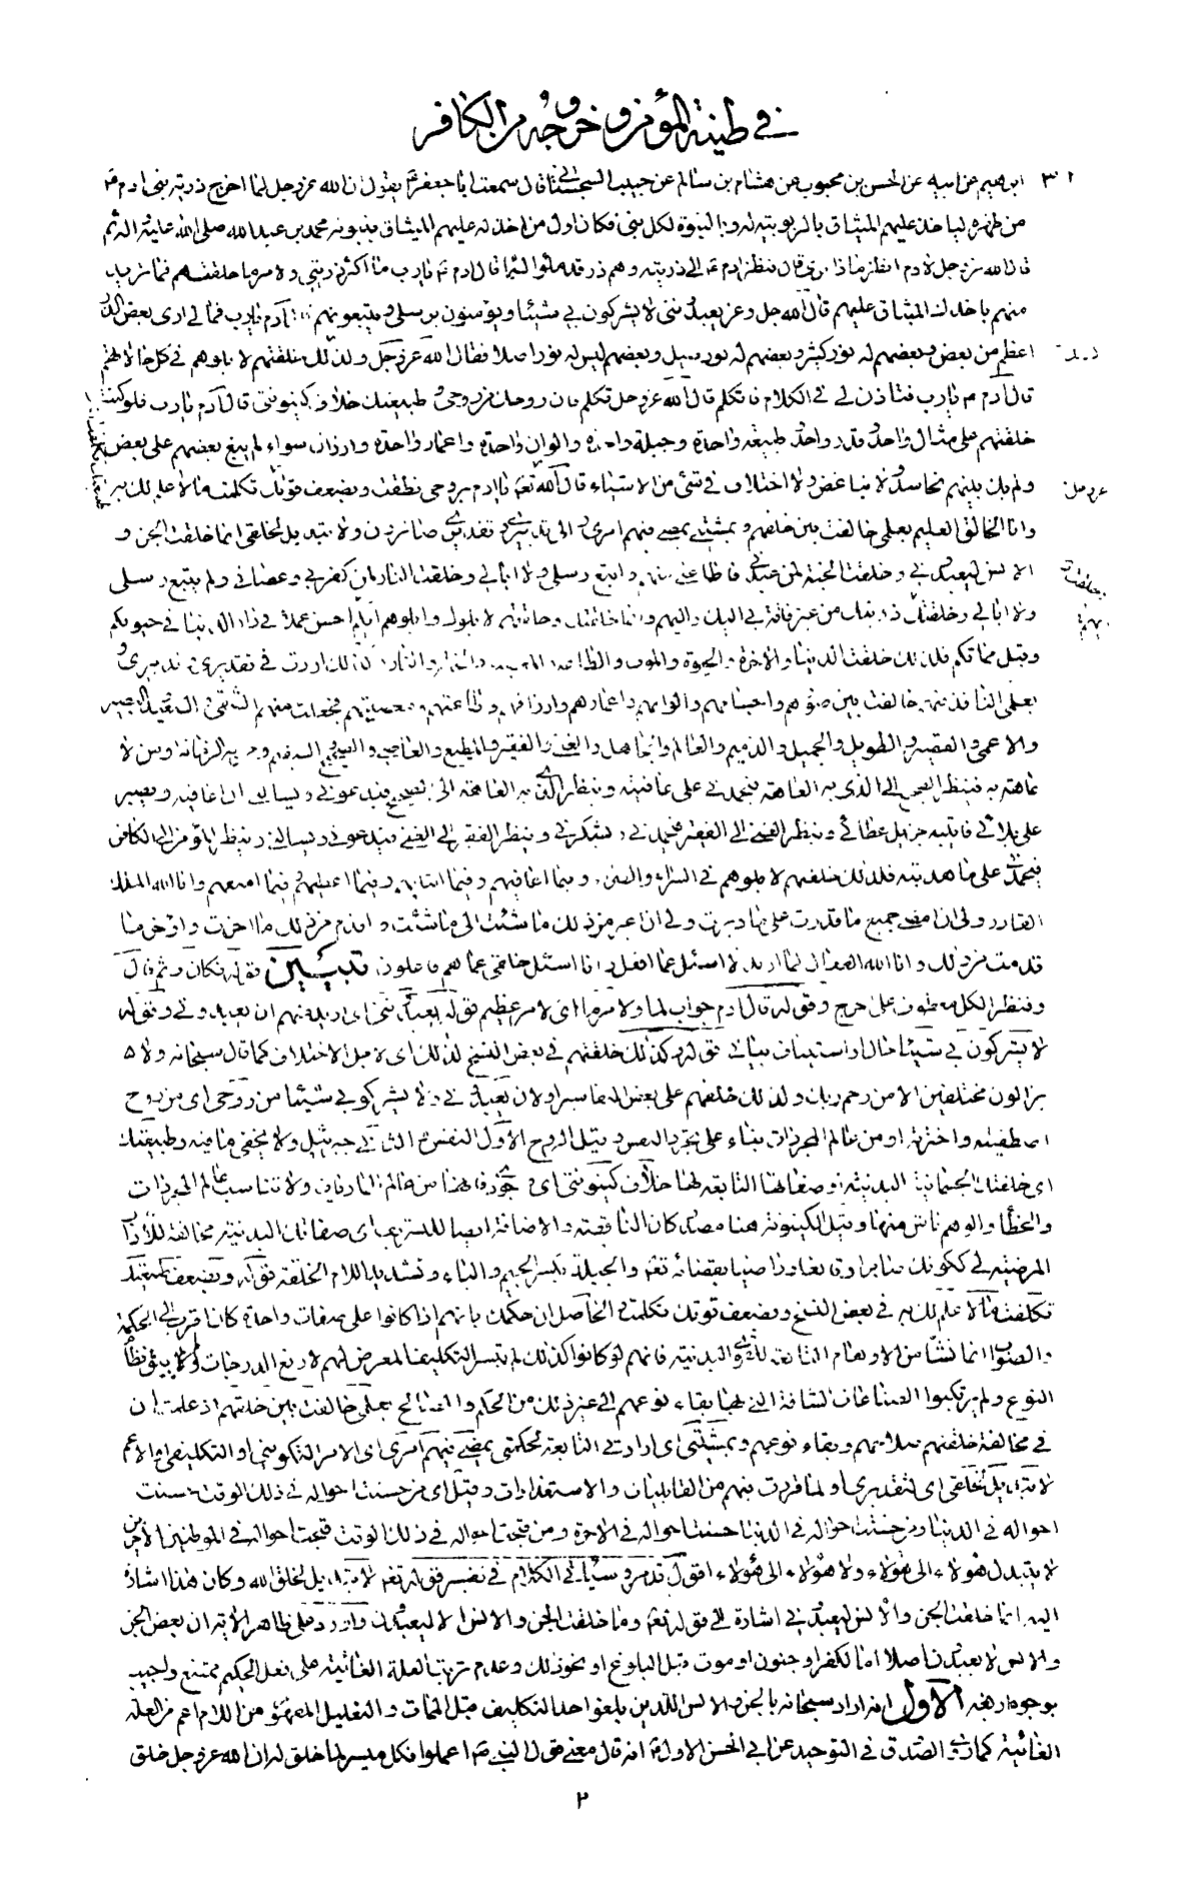 في طينة المؤمن و خروجه من الكافر
ابرهيم عن ابيه عن الحسن بن محبوب عن هشام بن سالم عن حبيب السجستاني قال سمعت ابا جعفر ع يقول ان الله عز و جل لما اخرج ذرية بني ادم
من ظهره لياخذ عليهم الميثاق بالربوبية له و بالنبوة لكل نبي فكان اول من اخذ له عليهم الميثاق بنبوته محمد بن عبد الله صلى الله عليه و اله ثم
قال الله عز و جل لادم انظر ماذا ترى قال فنظر ادم ع الى ذريته و هم ذر قد ملئوا السماء قال ادم ع يا رب ما اكثر ذريتي و لامر ما خلقتهم فما تريد
منهم باخذك الميثاق عليهم قال الله جل و عز يعبدونني لا يشركون بي شيئا و يؤمنون برسلي و يتبعونهم قال آدم يا رب فما لي ارى بعض الذر
اعظم من بعض و بعضهم له نور كثير و بعضهم له نور قليل و بعضهم ليس له نور اصلا فقال الله عز و جل و كذلك خلقتهم لابلوهم في كل حالاتهم
قال آدم ع يا رب فتاذن لي في الكلام فاتكلم قال الله عز و جل تكلم فان روحك من روحي و طبيعتك خلاف كينونتي قال آدم يا رب فلو كنت
خلقتهم على مثال واحد و قدر واحد و طبيعة واحدة و جبلة واحدة و الوان واحدة و اعمار واحدة و ارزاق سواء لم يبغ بعضهم على بعض
و لم يك بينهم تحاسد و لا تباغض و لا اختلاف في شئ من الاشياء قال الله تعالى يا ادم بروحي نطقت و بضعف قوتك تكلمت ما لا علم لك به
و انا الخالق العليم بعلمي خالفت بين خلقهم و بمشيتي يمضي فيهم امري و الى تدبيري و تقديري صائرون و لا تبديل لخلقي انما خلقت الجن و
الانس ليعبدوني و خلقت الجنة لمن عبدني فاطاعني منهم و اتبع رسلي و لا ابالي و خلقت النار لمن كفر بي و عصاني و لم يتبع رسلي
و لا ابالي و خلقتك و ذريتك من غير فاقة بي اليك و اليهم و انما خلقتك و خلقتهم لابلوك و ابلوهم ايكم احسن عملا في دار الدنيا في حيوتكم
و قبل مماتكم فلذلك خلقت الدنيا و الاخرة و الحيوة و الموت و الطاعة و المعصية و الجنة و النار و كذلك اردت في تقديري و تدبيري و
بعلمي النافذ فيهم خالفت بين صورهم و اجسامهم و الوانهم و اعمارهم و ارزاقهم و طاعتهم و معصيتهم فجعلت منهم الشقي و السعيد و البصير
و الاعمى و القصير و الطويل و الجميل و الدميم و العالم و الجاهل و الغني و الفقير و المطيع و العاصي و الصحيح و السقيم و من به الزمانة و من لا
عاهة به فينظر الصحيح الى الذي به العاهة فيحمدني على عافيته و ينظر الذي به العاهة الى الصحيح فيدعوني و يسالني ان اعافيه و يصبر
على بلائي فاثيبه جزيل عطائي و ينظر الغني الى الفقير فيحمدني و يشكرني و ينظر الفقير الى الغني فيدعوني و يسالني و ينظر المؤمن الى الكافر
فيحمدني على ما هديته فلذلك خلقتهم لابلوهم في السراء و الضراء و فيما اعافيهم و فيما ابتليهم و فيما اعطيهم و فيما امنعهم و انا الله الملك
القادر و لي ان امضي جميع ما قدرت على ما دبرت و لي ان اغير من ذلك ما شئت الى ما شئت و اقدم من ذلك ما اخرت و اؤخر ما
قدمت من ذلك و انا الله الفعال لما اريد لا اسئل عما افعل و انا اسئل خلقي عما هم فاعلون تبيين قوله فكان و ثم قال
و فنظر الكل معطوف على اخرج و قوله قال آدم جواب لما و لامر ما اي لامر عظيم قوله يعبدونني اي اريد منهم ان يعبدوني و قوله
لا يشركون بي شيئا حال او استيناف بياني قوله و كذلك خلقتهم في بعض النسخ لذلك اي لاجل الاختلاف كما قال سبحانه و لا
يزالون مختلفين الا من رحم ربك و لذلك خلقهم
اصطفيته و اخترته او من عالم المجردات بناء على تجرد النفس و قيل الروح الاول النفس و الثاني جبرئيل و لا يخفى ما فيه و طبيعتك
اي خلقتك الجسمانية البدنية و صفاتها التابعة لها خلاف كينونتي اي وجودي فانها من عالم الماديات و لا تناسب عالم المجردات
و الخطأ و الوهم ناش منها و قيل الكينونة هنا مصدر كان الناقصة و الاضافة ايضا للتشريف اي صفاتك البدنية مخالفة للآداب
المرضية لي ككونك صابرا و قانعا و راضيا بقضائه تعالى و الجبلة بكسر الجيم و الباء و تشديد اللام الخلقة قوله و بضعف طبيعتك
تكلفت ما لا علم لك به في بعض النسخ و بضعف قوتك تكلمت و الحاصل ان حكمك بانهم اذا كانوا على صفات واحدة كان اقرب الى الحكمة
و الصواب انما نشأ من الاوهام التابعة للقوى البدنية فانهم لو كانوا كذلك لم يتيسر التكليف المعرض لهم لارفع الدرجات و لم يبق نظام
النوع و لم يرتكبوا الصناعات الشاقة التي بها بقاء نوعهم الى غير ذلك من الحكم و المصالح بعلمي خالفت بين خلقهم اذ علمت ان
في مخالفة خلقتهم صلاحهم و بقاء نوعهم و بمشيتي اي ارادتي التابعة لحكمتي يمضي فيهم امري اي الامر التكويني او التكليفي او الاعم
لا تبديل لخلقي اي لتقديري او لما قررت فيهم من القابليات و الاستعدادات و قيل اي من حسنت احواله في ذلك الوقت حسنت
احواله في الدنيا و من حسنت احواله في الدنيا حسنت احواله في الاخرة و من قبحت احواله في ذلك الوقت قبحت احواله في الموطنين الاخرين
لا يتبدل هؤلاء الى هؤلاء و لا هؤلاء الى هؤلاء اقول قد مر و سيأتي الكلام في تفسير قوله تعالى لا تبديل لخلق الله و كان هذا اشارة
اليه انما خلقت الجن و الانس ليعبدوني اشارة الى قوله تعالى و ما خلقت الجن و الانس الا ليعبدون و اورد على ظاهر الاية ان بعض الجن
و الانس لا يعبدون اصلا اما لكفر او جنون او موت قبل البلوغ او نحو ذلك و عدم ترتب العلة الغائية على فعل الحكيم ممتنع و اجيب
بوجوه اربعة الاول انه اراد سبحانه بالجن و الانس اللذين بلغوا حد التكليف قبل الممات و التعليل المفهوم من اللام اعم من العلة
الغائية كما روى الصدوق في التوحيد عن ابي الحسن الاول ع انه قال معنى قول النبي ص اعملوا فكل ميسر لما خلق له ان الله عز و جل خلق
٢